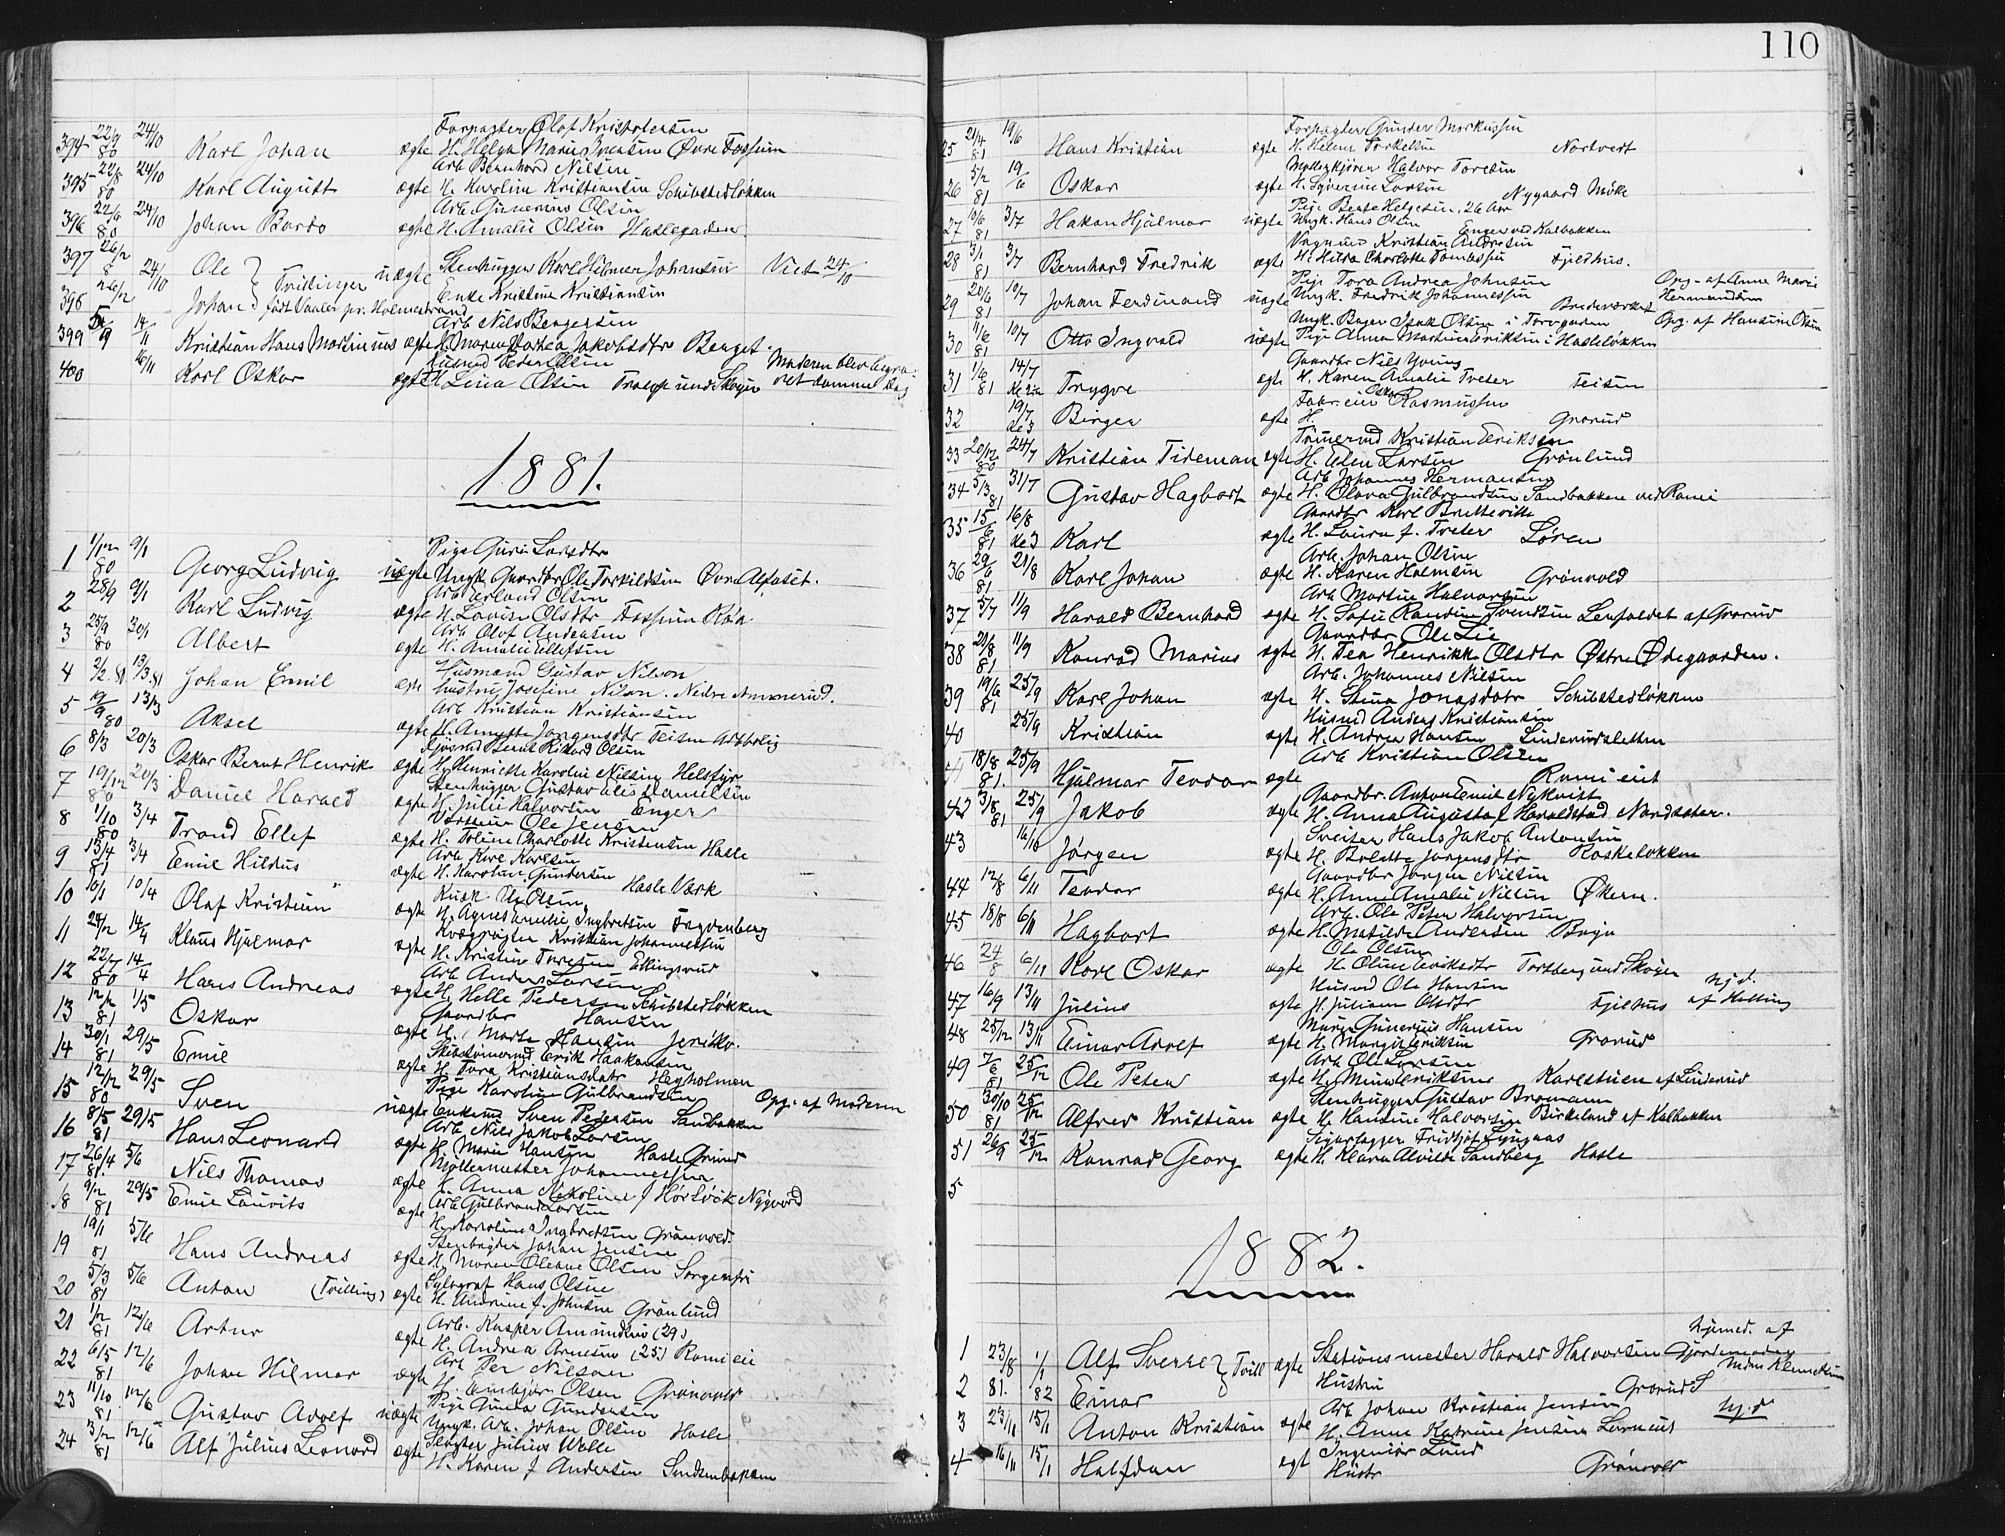 110
394 22/9 80 24/10 Karl Johan ægte Forpagter Olaf Kristofersen
H. Helga Marie Iversen Øvre Fossum
395 22/8 80 24/10 Karl August ægte Arb Bernhard Nilsen
H. Karoline Kristiansen Schibstedløkken
396 22/9 80 24/10 Johan Bardo ægte Arb. Gunerius Olsen
H. Amalie Olsen Haslegaden
397 26/2 8 24/10 Ole } Tvillinger uægte Stenhugger Karl Hilmer Johansen Viet 24/10
398 26/2 Johan } født Vaaler pr. Holmestrand Enke Kristine Kristiansen
399 14/11 Kristian Hans Martinius ægte Arb Nils Bengersen
H. Maren Dortea Jakobsdtr Berget.
400 16/11 Karl Oskar ægte Husmd Peder Olsen
H. Lina Olsen Moderen blev begravet samme dag
1881.
1 1/12 80 9/1 Georg Ludvig uægte Pige Guri Larsdtr
Ungk. Gaardbr Ole Torkildsen Øvre Alfaset.
2 28/9 9/1 Karl Ludvig ægte Arb Erland Olsen
H. Lovise Olsdtr Fossum
3 25/9 80 30/1 Albert ægte Arb Olof Andersen
H. Amalie Ellefsen
4 2/2 81 13/3 81 Johan Emil ægte Husmand Gustav Nilson
hustru Josefine Nilson. Nedre Ammerud.
5 19/9 80 13/3 Aksel ægte Arb Kristian Kristiansen
H. Annette Jørgensdtr Teisen
6 8/3 20/3 Oskar Bernt Henrik ægte Bernt Rikard Olsen
H. Henriette Karoline Nilsen Helsfyr
7 19/12 80 20/3 Daniel Harald ægte Stenhugger Gustav Danielsen
H. Julie Halvorsen Enger
8 1/10 80 3/4 Trond Ellef ægte Ole Jensen
H. Toline Charlotte Kristensen Hasle
9 13/4 81 3/4 Emil Hildus ægte Arb Karl Karlsen
H. Karoline Gundersen Hasle Værk
10 10/1 10/4 Olaf Kristian ægte Kusk Ole Olsen
H. Agnes Emilie Ingbretsen Fagerberg
11 29/12 14/4 Klaus Hjalmar ægte Kristian Johannessen
H. Kristine Toresen Ellingsrud
12 22/7 80 14/4 Hans Andreas ægte Arb Anders Larsen
H. Helle Pedersen Schibstedløkken
13 12/2 81 1/5 Oskar ægte Gaardbr Hansen
H. Marte Hansen Jeriko.
14 30/1 81 29/5 Emil ægte Skibstømmermd Erik Haakensen
H. Tora Kristiansdatr Hegholmen
15 12/12 80 29/5 Sven uægte Pige Karoline Gulbrandsen
Enkemd Sven Pedersen Sandbakken Opg. af Moderen
16 8/5 81 29/5 Hans Leonard ægte Arb Nils Jakob Larsen
H. Marie Hansen Hasle Grind
17 26/4 81 5/6 Nils Thomas ægte Møllermester Johannessen
H. Anna Nikoline f Hørløck Nygaard
18 9/12 81 29/5 Emil Lauvits ægte Arb Gulbrand Larsen
H. Karoline Ingbretsen Grønvold.
19 19/1 81 5/6 Hans Andreas ægte Johan Jensen
H. Maren Oleane Olsen Sorgenfri
20 5/3 81 5/6 Anton (Tvilling) ægte Hans Olsen
H. Andrine f. Johnsen Grønlund
21 1/12 81 12/6 Artur ægte Arb. Kasper Amundsen (29)
H. Andrea Arnesen (25) Romi eie
22 6/5 81 12/6 Johan Hilmar ægte Arb Per Nilsson
H. Embjør Olsen Grønvold
23 11/10 81 12/6 Gustav Adolf uægte Pige Anna Gundersen
Ungk. Arb. Johan Olsen Hasle
24 3/12 81 12/6 Alf Julius Leonard ægte Slagter Julius Welle
H. Karen f Andersen
25 21/4 81 19/6 Hans Kristian ægte Forpagter Gunder Markussen
H. Helene Torkelsen Nordtvet
26 5/2 81 19/6 Oskar ægte Møllerkjører Halvor Toresen
H. Syverine Larsen Nygaard Mølle
27 10/6 81 3/7 Hakon Hjalmar uægte Pige Beate Helgesen, 26 Aar
Ungk. Hans Olsen Enger ved Kalbakken
28 3/1 81 3/7 Bernhard Fredrik ægte Kristian Andresen
H. Hilda Charlotte Tomassen Fjeldhus.
29 20/6 81 10/7 Johan Ferdinand uægte Pige Tora Andrea Johnsen
Ungk. Fredrik Johannessen Opg. af Anne Marie Hermandsen
30 11/6 81 10/7 Otto Ingvald uægte Ungk. Bager Isak Olsen i Torvgaden Opg. af Hansine Olsen
Pige Anna Martine Eriksen i Hasleløkken
31 1/6 81 14/7 Trygve ægte Gaardbr Nils Young
H. Karen Amalie Treter Teisen
32 19/7 Birger ægte Fabr. eier Oskar Rasmussen
H. Grorud
33 20/12 80 24/7 Kristian Tideman ægte Tømermd Kristian Eriksen
H. Elen Larsen Grønlund
34 5/3 81 31/7 Gustav Hagbart ægte Arb Johannes Hermansen
H. Olava Gulbrandsen Sandbakken ved Romi
35 15/6 81 16/8 Karl ægte Gaardbr Karl Bretteville
H. Laura f. Treter Løren
36 29/6 81 21/8 Karl Johan ægte Arb. Johan Olsen
H. Karen Halmsen Grønvold
37 5/7 11/9 Harald Bernhard ægte Arb Martin Halvorsen
H. Sofie Randine Svendsen af Grorud
38 21/8 81 11/9 Konrad Marius ægte Gaardbr Ole Lie
H. Tea Henrikke Olsdtr Østre Ødegaarden.
39 19/6 81 25/9 Karl Johan ægte Arb. Johannes Nilsen
H. Stina Jonasdatr Schibstedløkken
40 25/9 Kristian ægte Husmd Anders Kristiansen
H. Andrea Hansen Linderudsletten
41 18/8 81. 25/9 Hjalmar Teodor ægte Arb Kristian Olsen
Romi eie
42 3/8 81 25/9 Jakob ægte Gaardbr. Anton Emil Nykvist
H. Anna Augusta f Haraldstad Nordseter.
43 16/10 Jørgen ægte Sveitser Hans Jakob Antonsen
H. Bolette Jørgensdtr
44 12/8 6/11 Teodor ægte Gaardbr Jørgen Nilsen
H. Anne Amalie Nilsen Økern.
45 18/8 6/11 Hagbart ægte Arb. Ole Peter Halvorsen
H. Matilde Andersen
46 24/8 6/11 Karl Oskar ægte Ole Olsen
H. Oline Eriksdtr
47 16/9 13/11 Julius ægte Husmd Ole Hansen
H. Juliane Olsdtr Fjelhus hj.d. af Helling
48 25/12 13/11 Einar Adolf ægte Murer Gunerius Hansen
H. Margit Eriksen Grorud
49 7/6 81 25/12 Ole Peter ægte Arb Ole Larsen
H. Mina Eriksen Karlstuen af Linderud
50 30/10 81 25/12 Alfred Kristian ægte Stenhugger Gustav Bromann
H. Hansine Halvorsen Birkeland af Kalbakken
51 26/9 25/12 Konrad Georg ægte Fridtjof
H. Klara Alvilde Sandberg Hasle
5
1882.
1 23/8 1/1 Alf Sverre } Tvill ægte Stationsmester Harald Halvorsen hjemed. af Gjordemoder
2 81. 82 Einar Hustru Grorud S
3 23/11 15/1 Anton Kristian ægte Arb Johan Kristian Jensen hj.d
H. Anne Katrine Jensen
4 16/11 15/1 Halfdan egt Ingeniør Lund
Hustr Grønvold